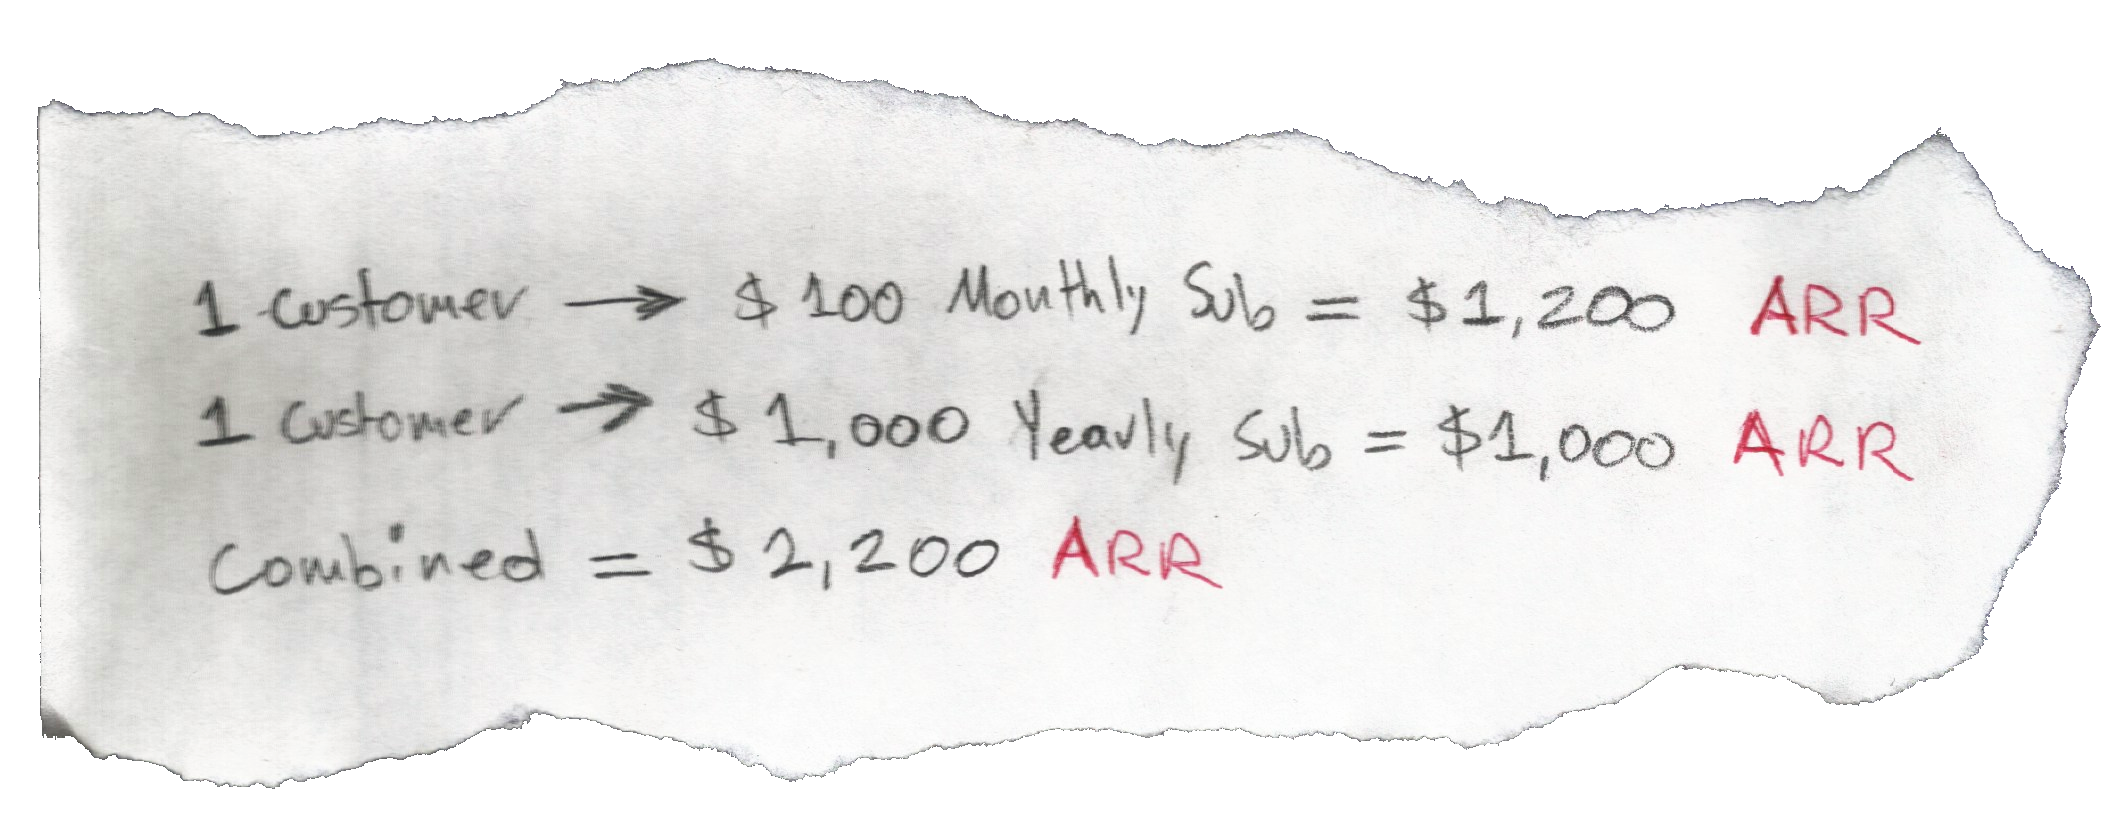 1 Customer → $ 100 Monthly Sub = $1,200 ARR
1 Customer → $ 1,000 Yearly Sub = $1,000 ARR
Combined = $ 2,200 ARR